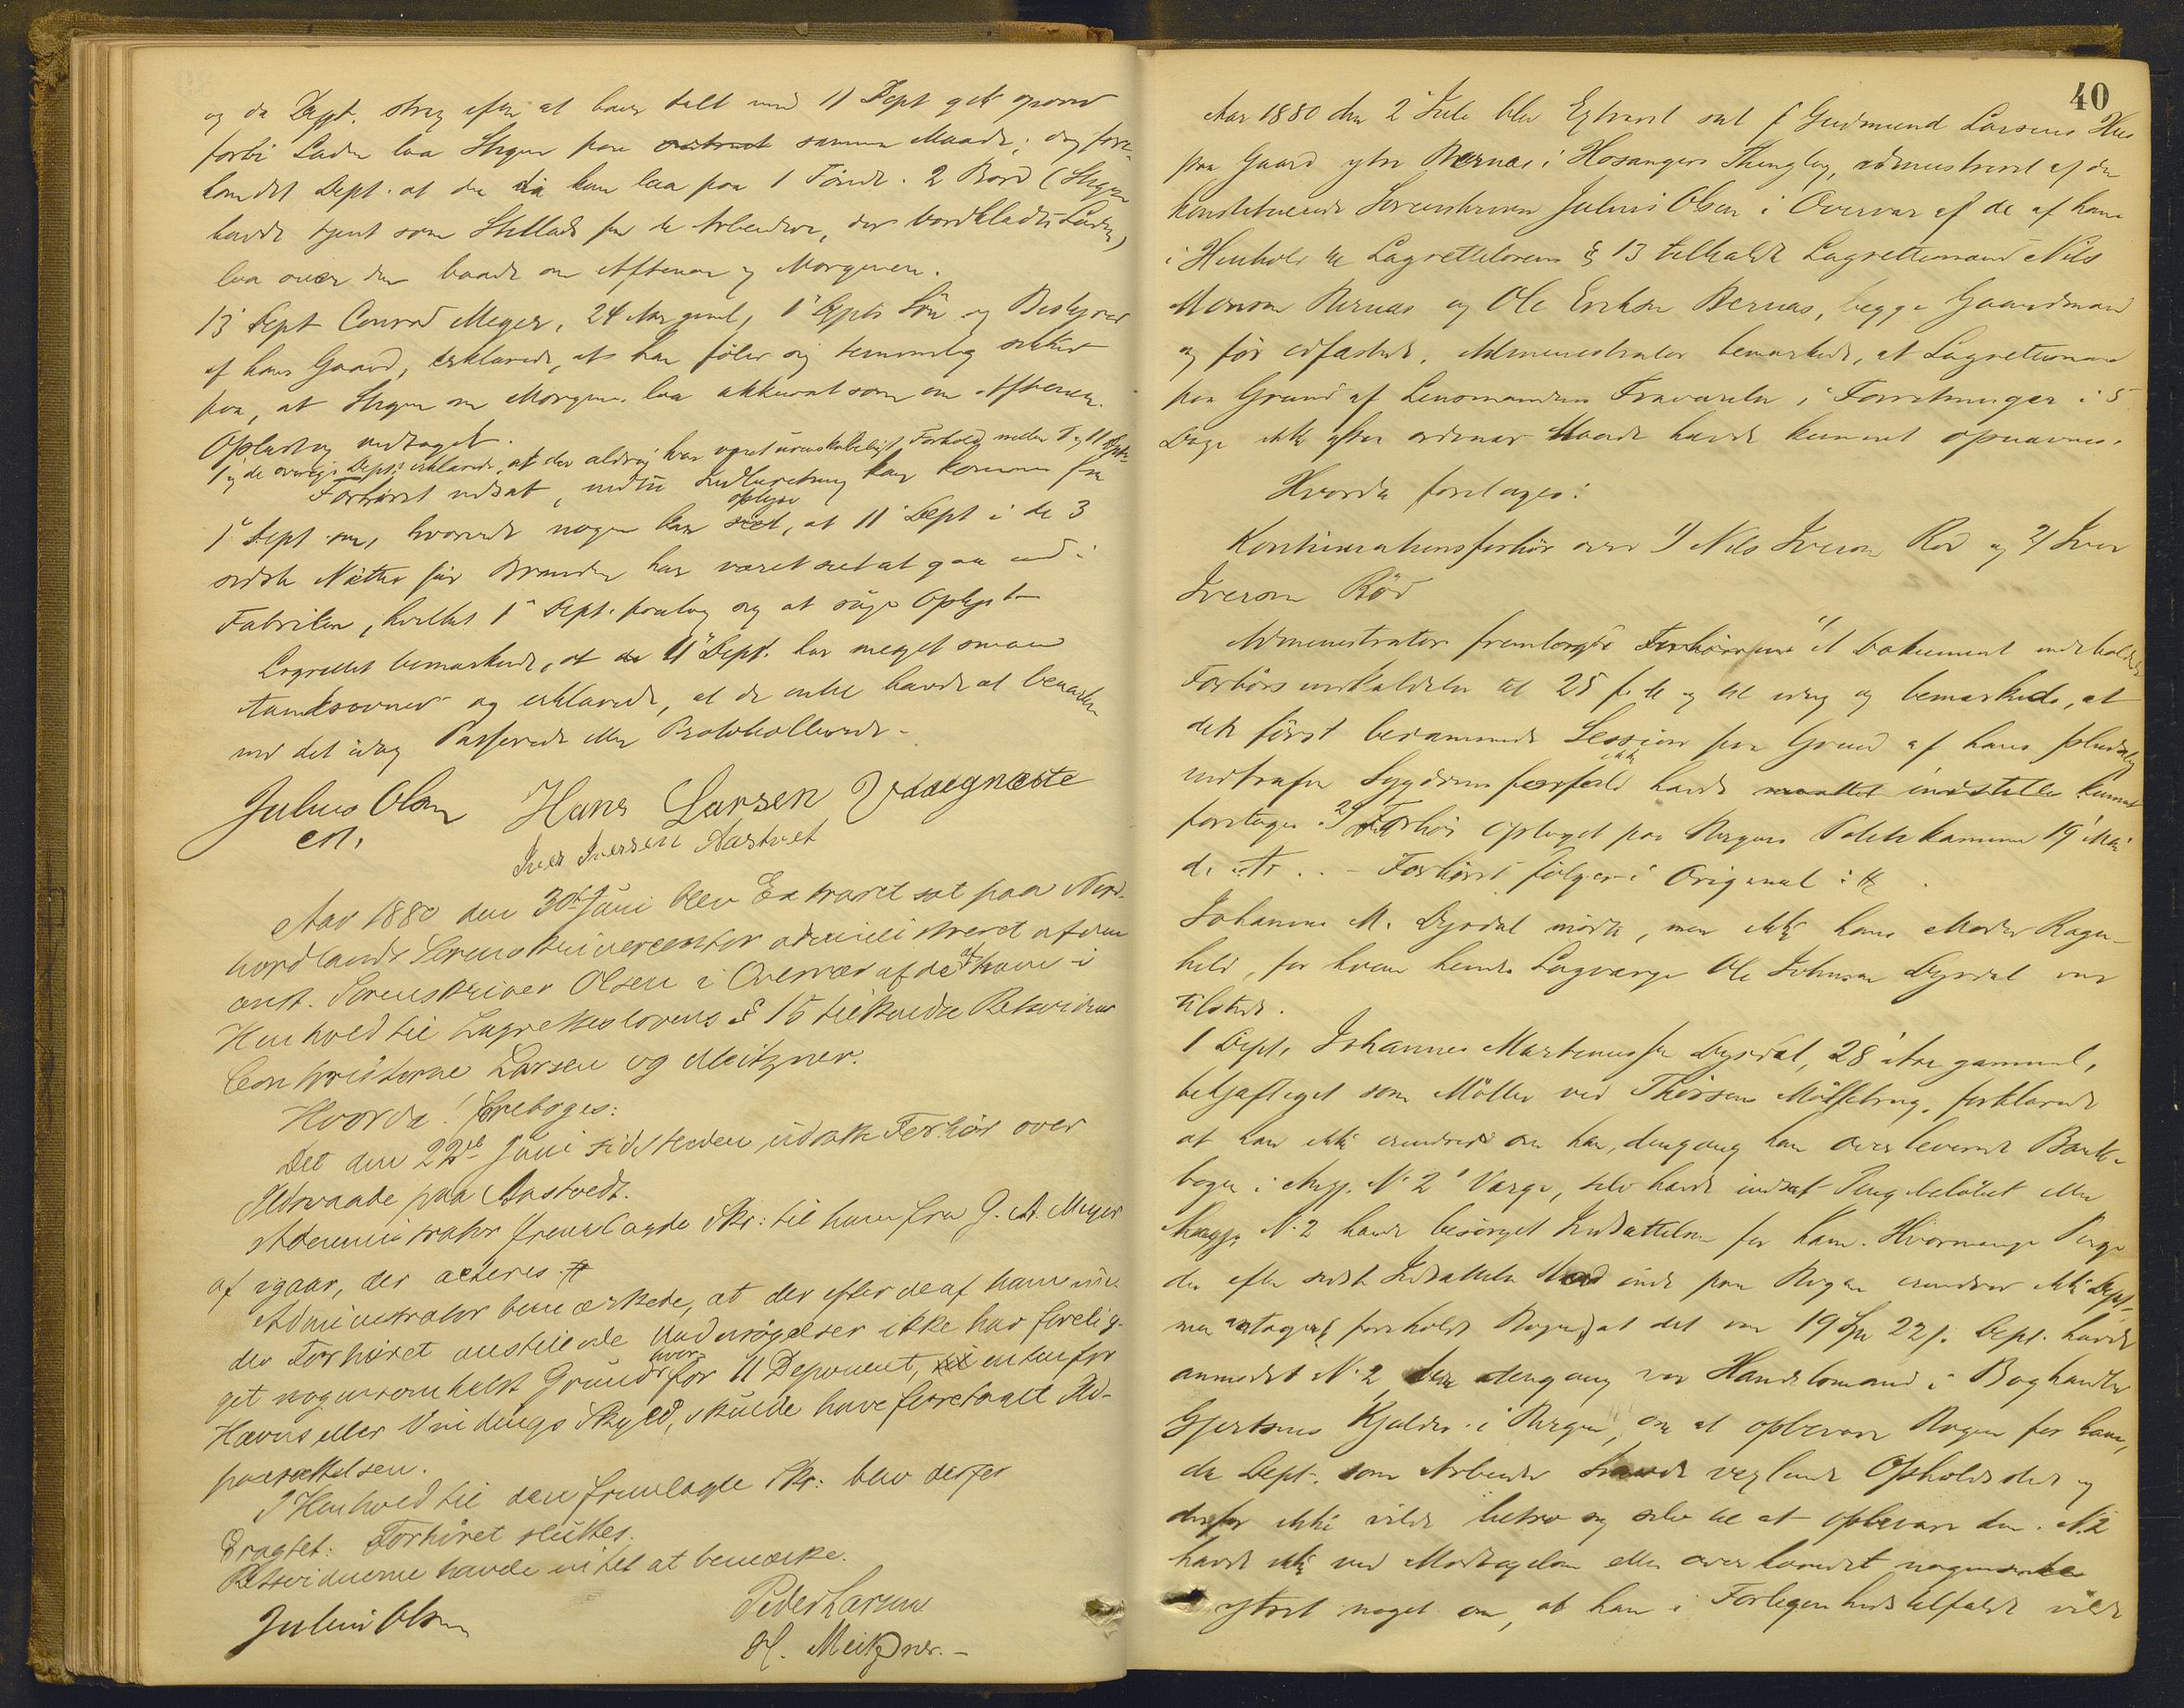 og da Dept. strax efter at have talt med 11 Dept gik
forbi Laden laa Stigen paa samme Maade; dog fore-
kom det Dept. at da kun laa paa 1 Tönde. 2 Bord (Stigen
havde tjent som Stillads for de Arbeidere, der bordklædte Laden)
laa over den baade om Aftenen og Morgenen.
13 Dept Conrad Meyer, 24 Aar gaml, 1 Depts Sön og Bestyrer
af hans Gaard, erklærede, at han föler sig temmelig sikker
paa, at Stigen om Morgenen laa akkurat som om Aftenen.
Oplæst og vedtaget.
1 og de øvrige Depts erklærede, at der aldrig har været uvenskabeligt Forhold mellem 1 og 11 Dept.
Forhöret udsat, indtil Indberetning kan komme fra
1 Dept om, hvorvidt nogen kan oplyse, at 11 Dept i de 3
sidste Nætter för Branden har været set at gaa ud i
Fabriken, hvilket 1 Dept. paatog sig at söge Oplyst.
Lagrettet bemærkede, at 11 Dept. har meget smaa
Aandsevner og erklærede, at de intet havde at bemærke
ved det idag Passerede eller Protokollerede.
Julius Olsen Hans Larsen Vaaegnæste
cst.
Iver Iversen Aastvet
Aar 1880 den 30te Juni blev Extraret sat paa Nord-
hordlands Sorenskrivercontor administreret af den
const. Sorenskriver Olsen i Overvær af de af ham i
Henhold til Lagretteslovens § 15 tilkaldte Retsvidner
Contoristerne Larsen og Meitzner.
Hvorda! foretoges:
Det den 22de Juni sidstleden udsatte Forhör over
Ildsvaade paa Aastvedt.
Administrator fremlagde Skr: til ham fra G. A. Meyer
af igaar, der acteres.
Administrator bemærkede, at der efter de af ham under
der Forhöret anstillede Undersögelser ikke har forelig-
get nogensomhelst Grund hvorfor 11 Deponent, enten for
Hævns eller Vindings Skyld, skulde have foretaget Ild-
paasættelsen.
I Henhold til den fremlagte Skr: blev derfor
Eragtet: Forhöret sluttes.
Retsvidnerne havde intet at bemærke.
Julius Olsen Peder Larsen
H. Meitzner.-
40
Aar 1880 den 2 Juli blev Extraret sat i Gudmund Larsens Hus
paa Gaard ytre Bernæs i Hosangers Thinglag, administreret af den
konstituerede Sorenskriver Julius Olsen i Overvær af de af ham
i Henhold til Lagrettelovens § 13 tilkaldte Lagrettemænd Nils
Monsen Bernæs og Ole Eriksen Bernæs, begge Gaardmænd
og för edfæstede. Administrator bemærkede, at Lagrettemænd
paa Grund af Lensmandens Fraværelse i Forretninger i 5
Dage ikke efter ordinær Maade havde kunnet opnævnes.
Hvorda foretoges:
Kontinuationsforhör over 1) Nils Iversen Röd og 2) Iver
Iversen Röd
Administrator fremlagde 1) et Dokument indeholdende
Forhörsindkaldelse til 25 f. M. og til idag og bemærkede, at
det först berammede Session paa Grund af hans pludselig
indtrufne Sygdomsforfald ikke havde kunnet
foretages. 2) Forhör optaget paa Bergens Politikammer 19 Mai
d. A. . - Forhöret fölger i Original: #
Johannes M. Dysdal mödte, men ikke hans Moder Ragn-
hild, for hvem hendes Lagværge Ole Johnsen Dysdal var
tilstede.
1 Dept, Johannes Martinussen Dysdal, 28 Aar gammel,
beskjæftiget som Möller ved Thörsens Möllebrug, forklarede
at han ikke erindrede om han, dengang han overleverede Bank-
bogen i Angj. No 2' Værge, selv havde indsat Pengebelöbet eller
Angj. No 2 havde besörget Indsættelsen for ham. Hvormange Penge
der efter sidste Indsættelse stod inde paa Bogen erindrer ikke Dept.
men antager, foreholdt Bogen, at det var 19 Spd 22 s. Dept. havde
anmodet No 2, der dengang var Handelsmand i Boghandler
Gjertsens Kjælder i Bergen, om at opbevare Bogen for ham,
da Dept. som Arbeider havde vexlende Opholdssted og
derfor ikke vilde betro sig selv til at opbevare den. No 2
havde ikke ved Modtagelsen eller overhovedet nogensinde
ytret noget om, at han i Forlegenhedstilfælde vilde